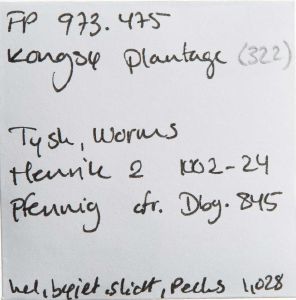 FP 973.475
Kongsø plantage (322)
Tysk, Worms
Henrik 2 1002-24
Pfennig cfr. Dbg. 845
hel, bøjet, slidt, 1,028